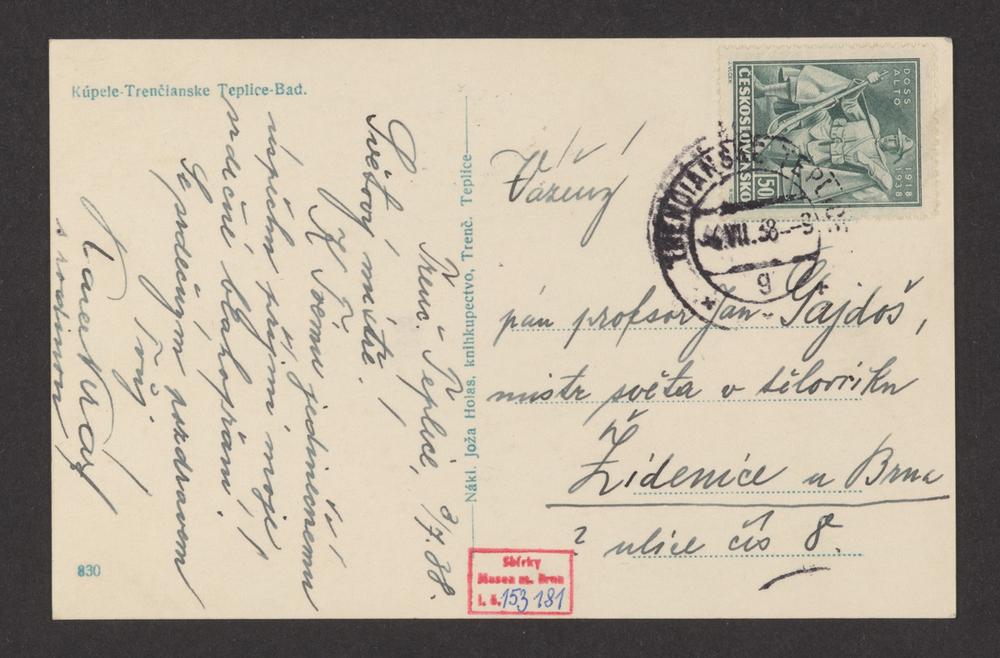 Kúpele-Trenčianske Teplice-Bad.
Trenč. Teplice, 8/7.38.
Světový mistře!
K Tvému jedinečnému
úspěchu přijmi moje
srdečné blahopřání!
Se srdečným pozdravem
Tvůj
Karel
s rodinou
830
Nákl. Joža Holas, knihkupectvo, Trenč. Teplice
DOSS ALTO
1918 1938
ČESKOSLOVENSKO
50
TRENČIANSKE TEPL
VII. 38
g
Vážený
pán profesor Jan Gajdoš,
mistr světa v tělocviku
Židenice u Brna
? ulice čís 8.
Sbírky
Musea m. Brna
i. č. 153 181